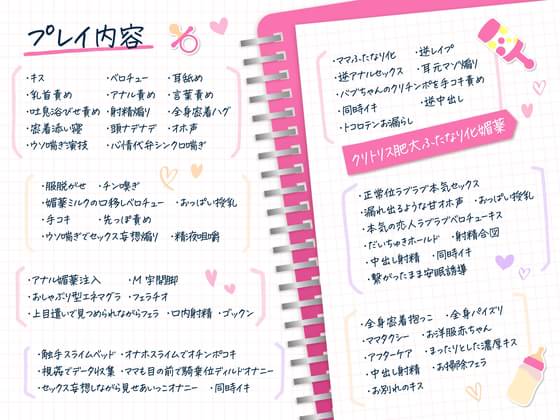 プレイ内容
・キス ・ベロチュー ・耳舐め
・乳首責め ・アナル責め ・言葉責め
・吐息浴びせ責め ・射精煽り ・全身密着ハグ
・密着添い寝 ・頭ナデナデ ・オホ声
・ウソ喘ぎ実技 ・心情代弁シンクロ喘ぎ
・服脱がせ ・チン嗅ぎ
・媚薬ミルクの口移しベロチュー ・おっぱい授乳
・手コキ ・先っぽ責め
・ウソ喘ぎでセックス妄想煽り ・精液咀嚼
・アナル媚薬注入 ・M字開脚
・おしゃぶり型エネマグラ ・フェラチオ
・上目遣いで見つめられながらフェラ ・口内射精 ・ゴックン
・触手スライムベッド ・オナホスライムでオチンポコキ
・視姦でデータ収集 ・ママも目の前で騎乗位ディルドオナニー
・セックス妄想しながら見せあいっこオナニー ・同時イキ
・ママふたなり化 ・逆レイプ
・逆アナルセックス ・耳元マゾ煽り
・バブちゃんのクリチンポを手コキ責め
・同時イキ ・逆中出し
・トコロテンお漏らし
クリトリス肥大ふたなり化媚薬
・正常位ラブラブ本気セックス
・漏れ出るような甘オホ声 ・おっぱい授乳
・本気の恋人ラブラブベロチューキス
・だいちゅきホールド ・射精合図
・中出し射精 ・同時イキ
・繋がったまま安眠誘導
・全身密着抱っこ ・全身パイズリ
・ママタクシー ・お洋服赤ちゃん
・アフターケア ・まったりとした濃厚キス
・中出し射精 ・お掃除フェラ
・お別れのキス